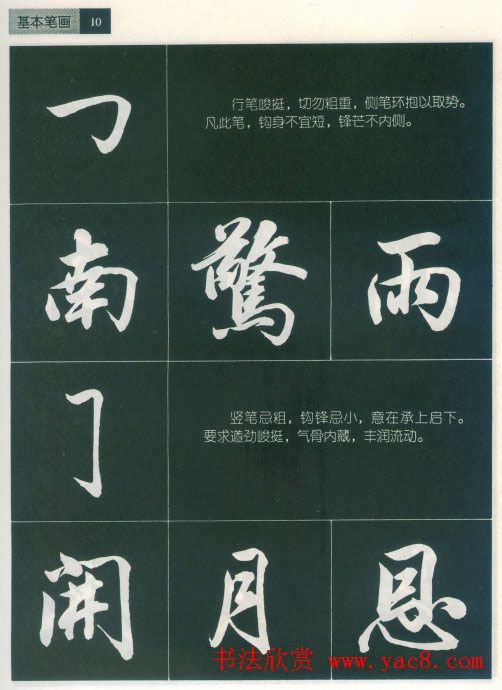 基本笔画 10
行笔峻挺，切勿粗重，侧笔环抱以取势。
凡此笔，钩身不宜短，锋芒不内侧。
南 驚 雨
竖笔忌粗，钩锋忌小，意在承上启下。
要求遒劲峻挺，气骨内藏，丰润流动。
開 月 恩
书法欣赏 www.yac8.com